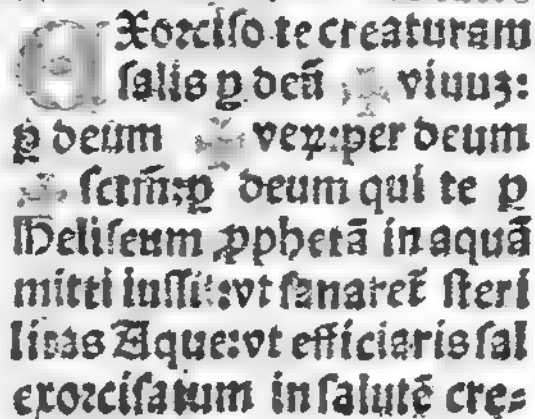 EXorciso te creaturam
salis ꝑ deū ✠ viuuꝫ:
ꝑ deum ✠ veꝝ: per deum
✠ sctm̄: ꝑ deum qui te ꝑ
Heliseum ꝓphetā in aquā
mitti iussit: vt sanaret̄ steri
litas Aque: vt efficiaris sal
exorcisatum in salutē cre⸗